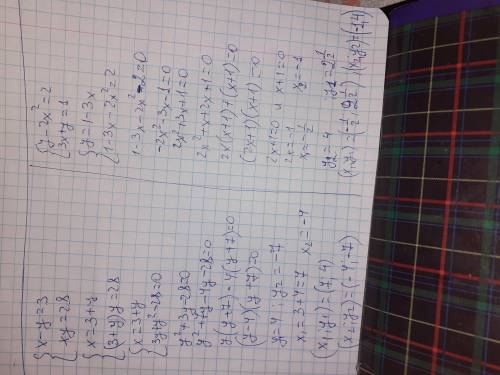 { x-y=3
{ xy=28
{ x=3+y
{ (3+y)y=28
{ x=3+y
{ 3y+y²-28=0
y²+3y-28=0
y²+7y-4y-28=0
y(y+7)-4(y+7)=0
(y-4)(y+7)=0
y=4 y₂=-7
x₁=3+4=7 x₂=-4
(x₁,y₁)=(7,4)
(x₂,y₂)=(-4,-7)
{ y-2x²=2
{ 3x+y=1
{ y=1-3x
{ 1-3x-2x²=2
1-3x-2x²-2=0
-2x²-3x-1=0
2x²+3x+1=0
2x²+x+2x+1=0
2x(x+1)+(x+1)=0
(2x+1)(x+1)=0
2x+1=0 и x+1=0
2x=-1 x₂=-1
x₁=-1/2
y₂=4 y₁=2 1/2
(x₁,y₁)=(-1/2, 2 1/2), (x₂,y₂)=(-1,4)